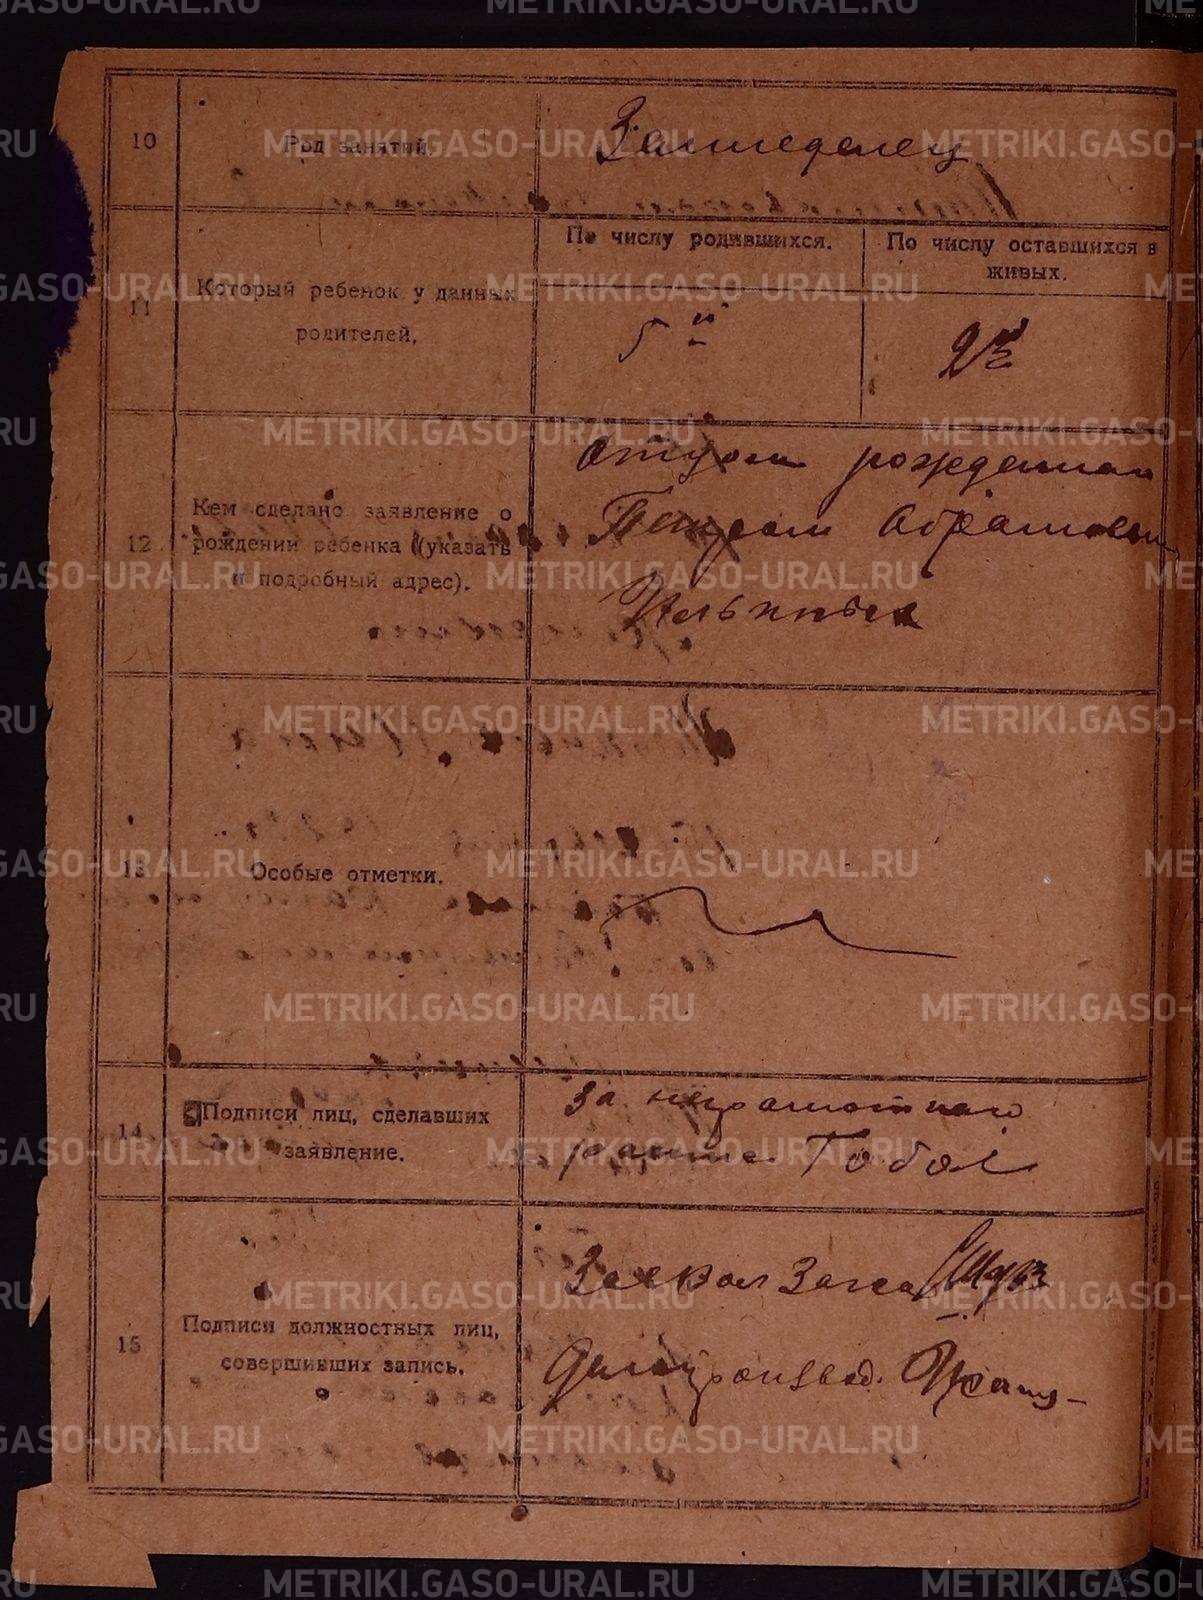 10
Род занятий.
Земледелец
11
Который ребенок у данных
родителей.
По числу родившихся.
По числу оставшихся в
живых.
5й
2й
12
Кем сделано заявление о
рождении ребенка (указать
и подробный адрес).
Отцом рожденная
Петром Абрамовым
Ильиных
13
Особые отметки.
14
Подписи лиц, сделавших
заявление.
За неграмотного
15
Подписи должностных лиц,
совершивших запись.
Завкол Загса
Делопроизвод.
METRIKI.GASO-URAL.RU